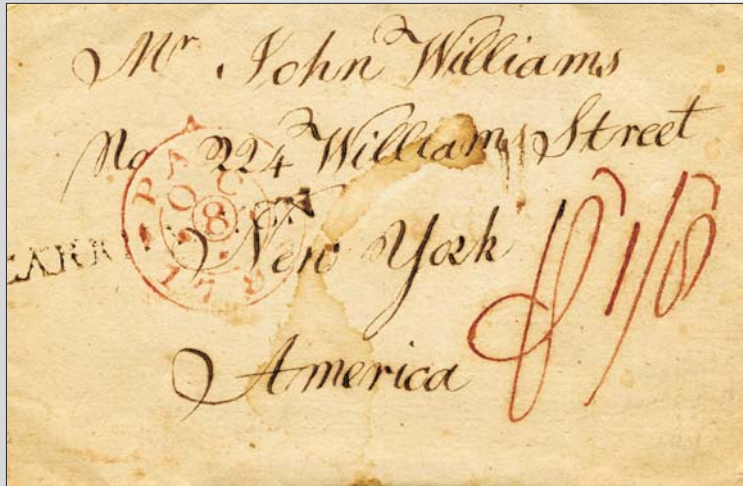 Mr John Williams
No 224 Williams Street
New York
America
P 1/8